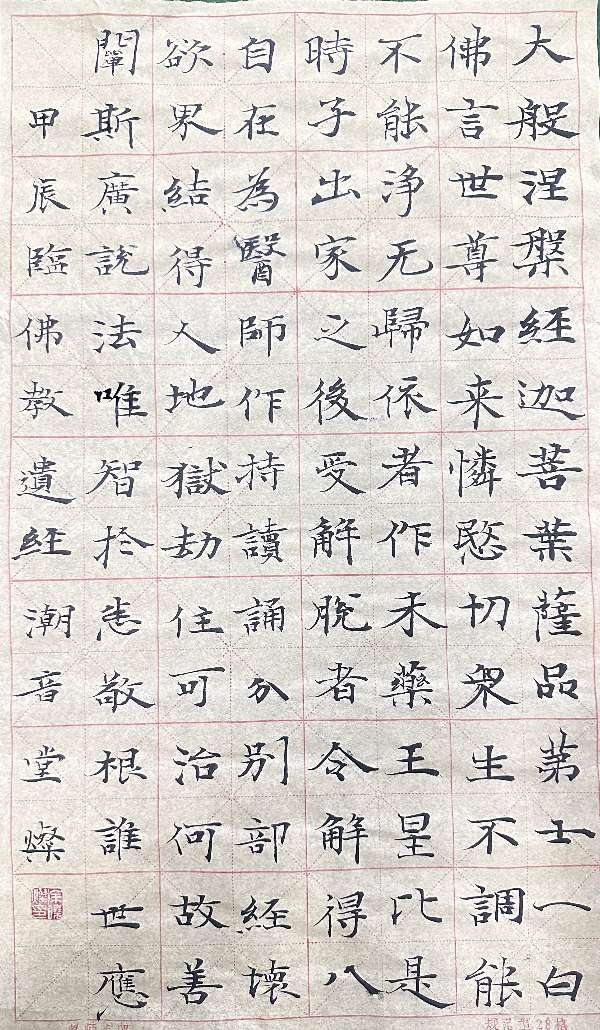 大般涅槃経迦菩葉薩品苐士一白
佛言世尊如来憐愍切衆生不調能
不能浄无歸依者作未藥王星比是
時子出家之後受解脱者令解得八
自在為醫師作持讀誦分别部経壞
欲界結得人地獄劫住可治何故善
闡斯廣説法唯智於敬根誰世應
甲辰臨佛教遺経潮音堂燦